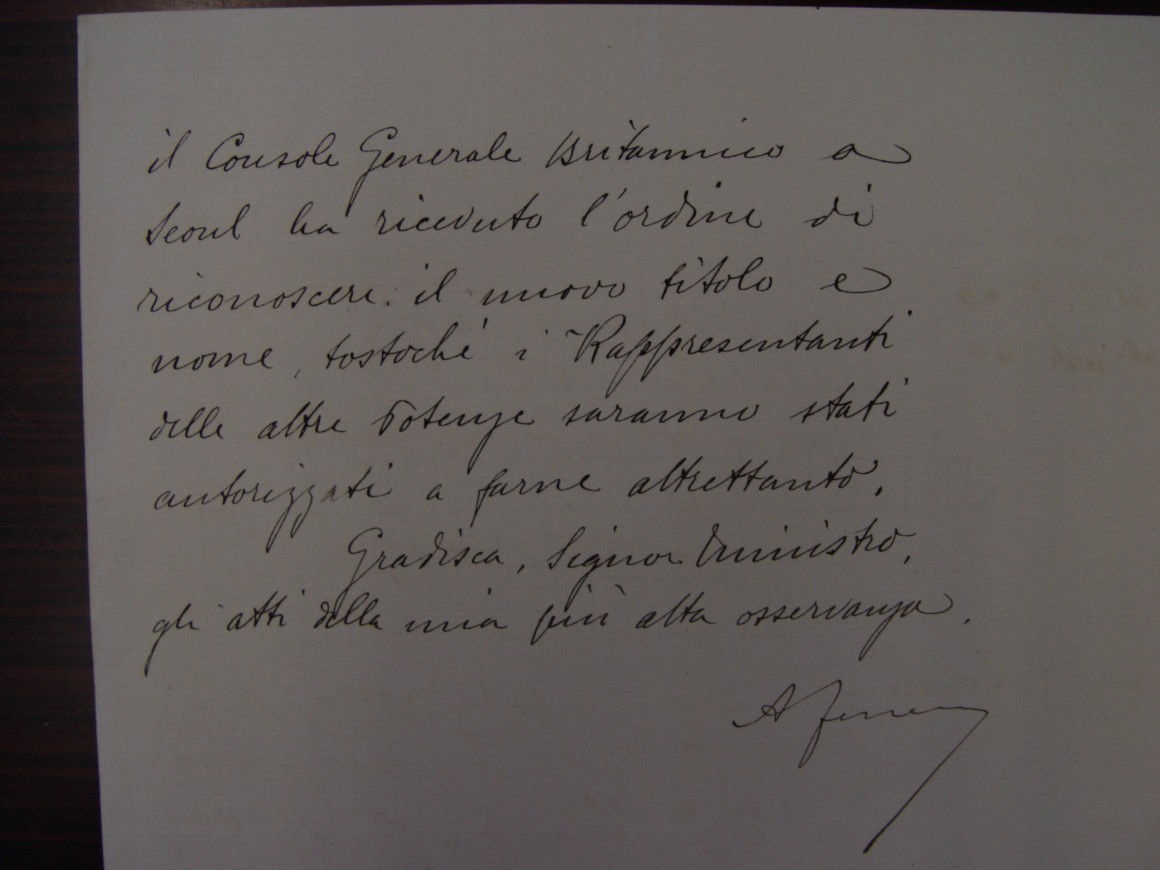 il Console Generale Britannico a
Seoul ha ricevuto l'ordine di
riconoscere il nuovo titolo e
nome, tostochè i Rappresentanti
delle altre Potenze saranno stati
autorizzati a farne altrettanto.
Gradisca, Signor Ministro,
gli atti della mia più alta osservanza.
A